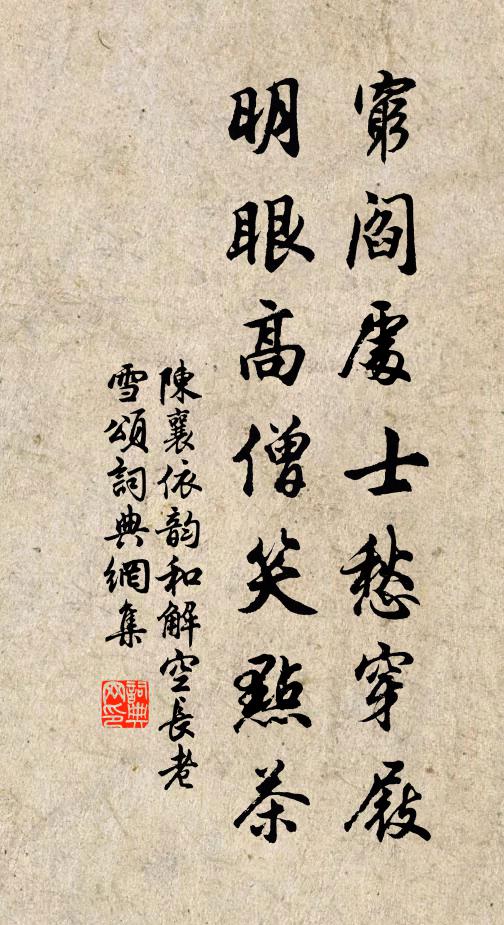 窮閻處士愁穿屐
明眼高僧笑點茶
陳襄依韵和解空長老
雪頌詞典網集
詞典網印